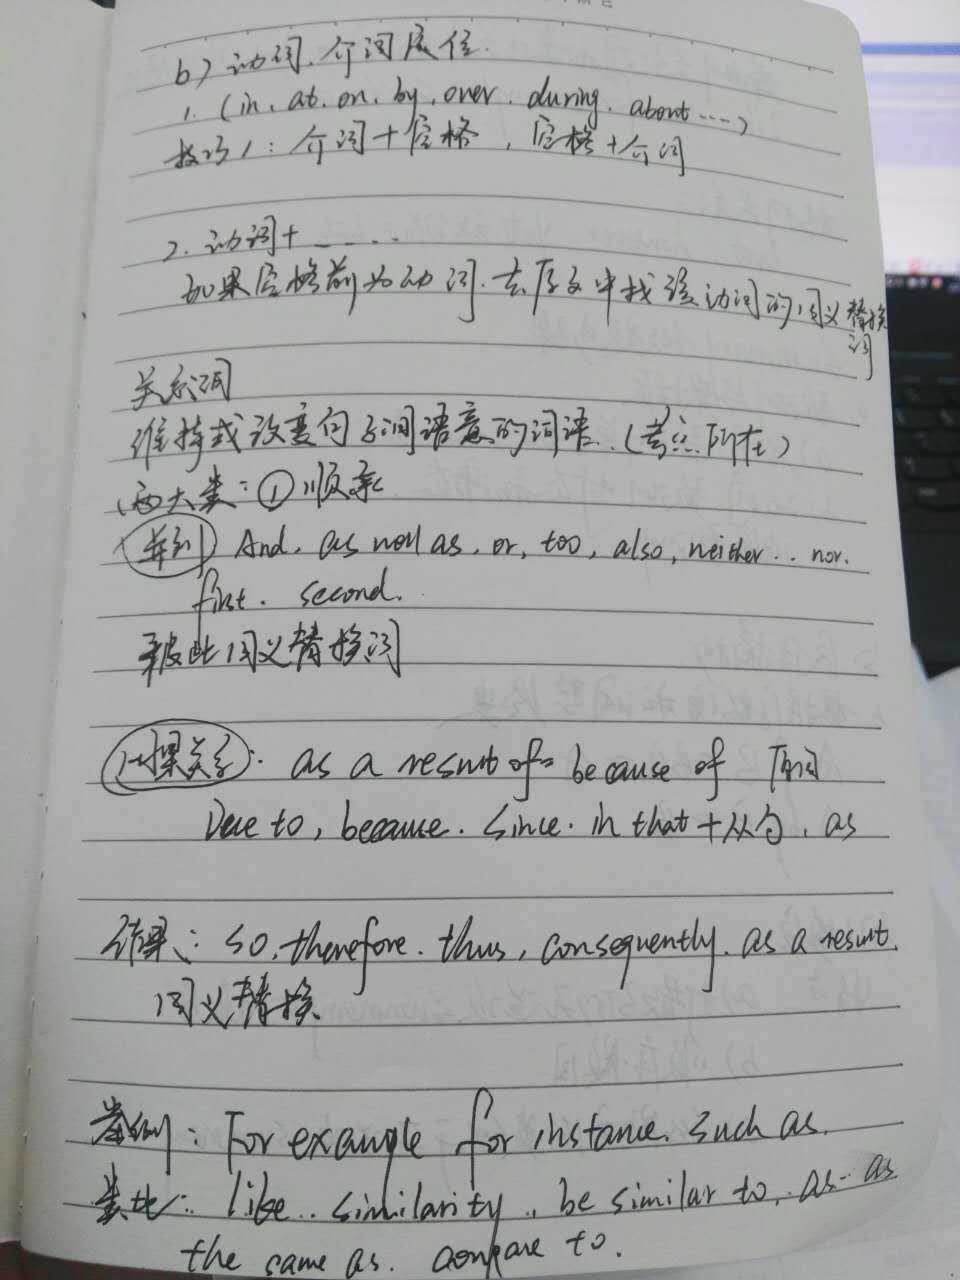 b) 动词、介词定位.
1. (in, at, on, by, over, during, about ....)
技巧1: 介词+空格, 空格+介词
2. 动词+ .....
如果空格前为动词, 去原文中找该动词的同义替换词
关系词
维持或改变句子间语意的词语. (考点所在)
两大类: ① 顺承
并列 And, as well as, or, too, also, neither .. nor.
first. second.
彼此同义替换词
因果关系: as a result of = because of 原因
Due to, because. since. in that + 从句, as
结果: so, therefore. thus, consequently, as a result.
同义替换
举例: For example for instance. such as.
类比: like.. similarity.. be similar to, as.. as
the same as. compare to.